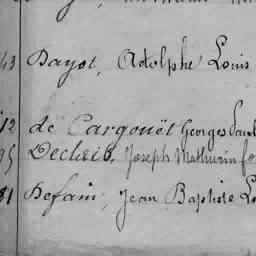 43 Bayot, Adolphe Louis
12 de Cargouët Georges Paul
95 Decheib, Joseph Mathurin
81 Defain, Jean Baptiste